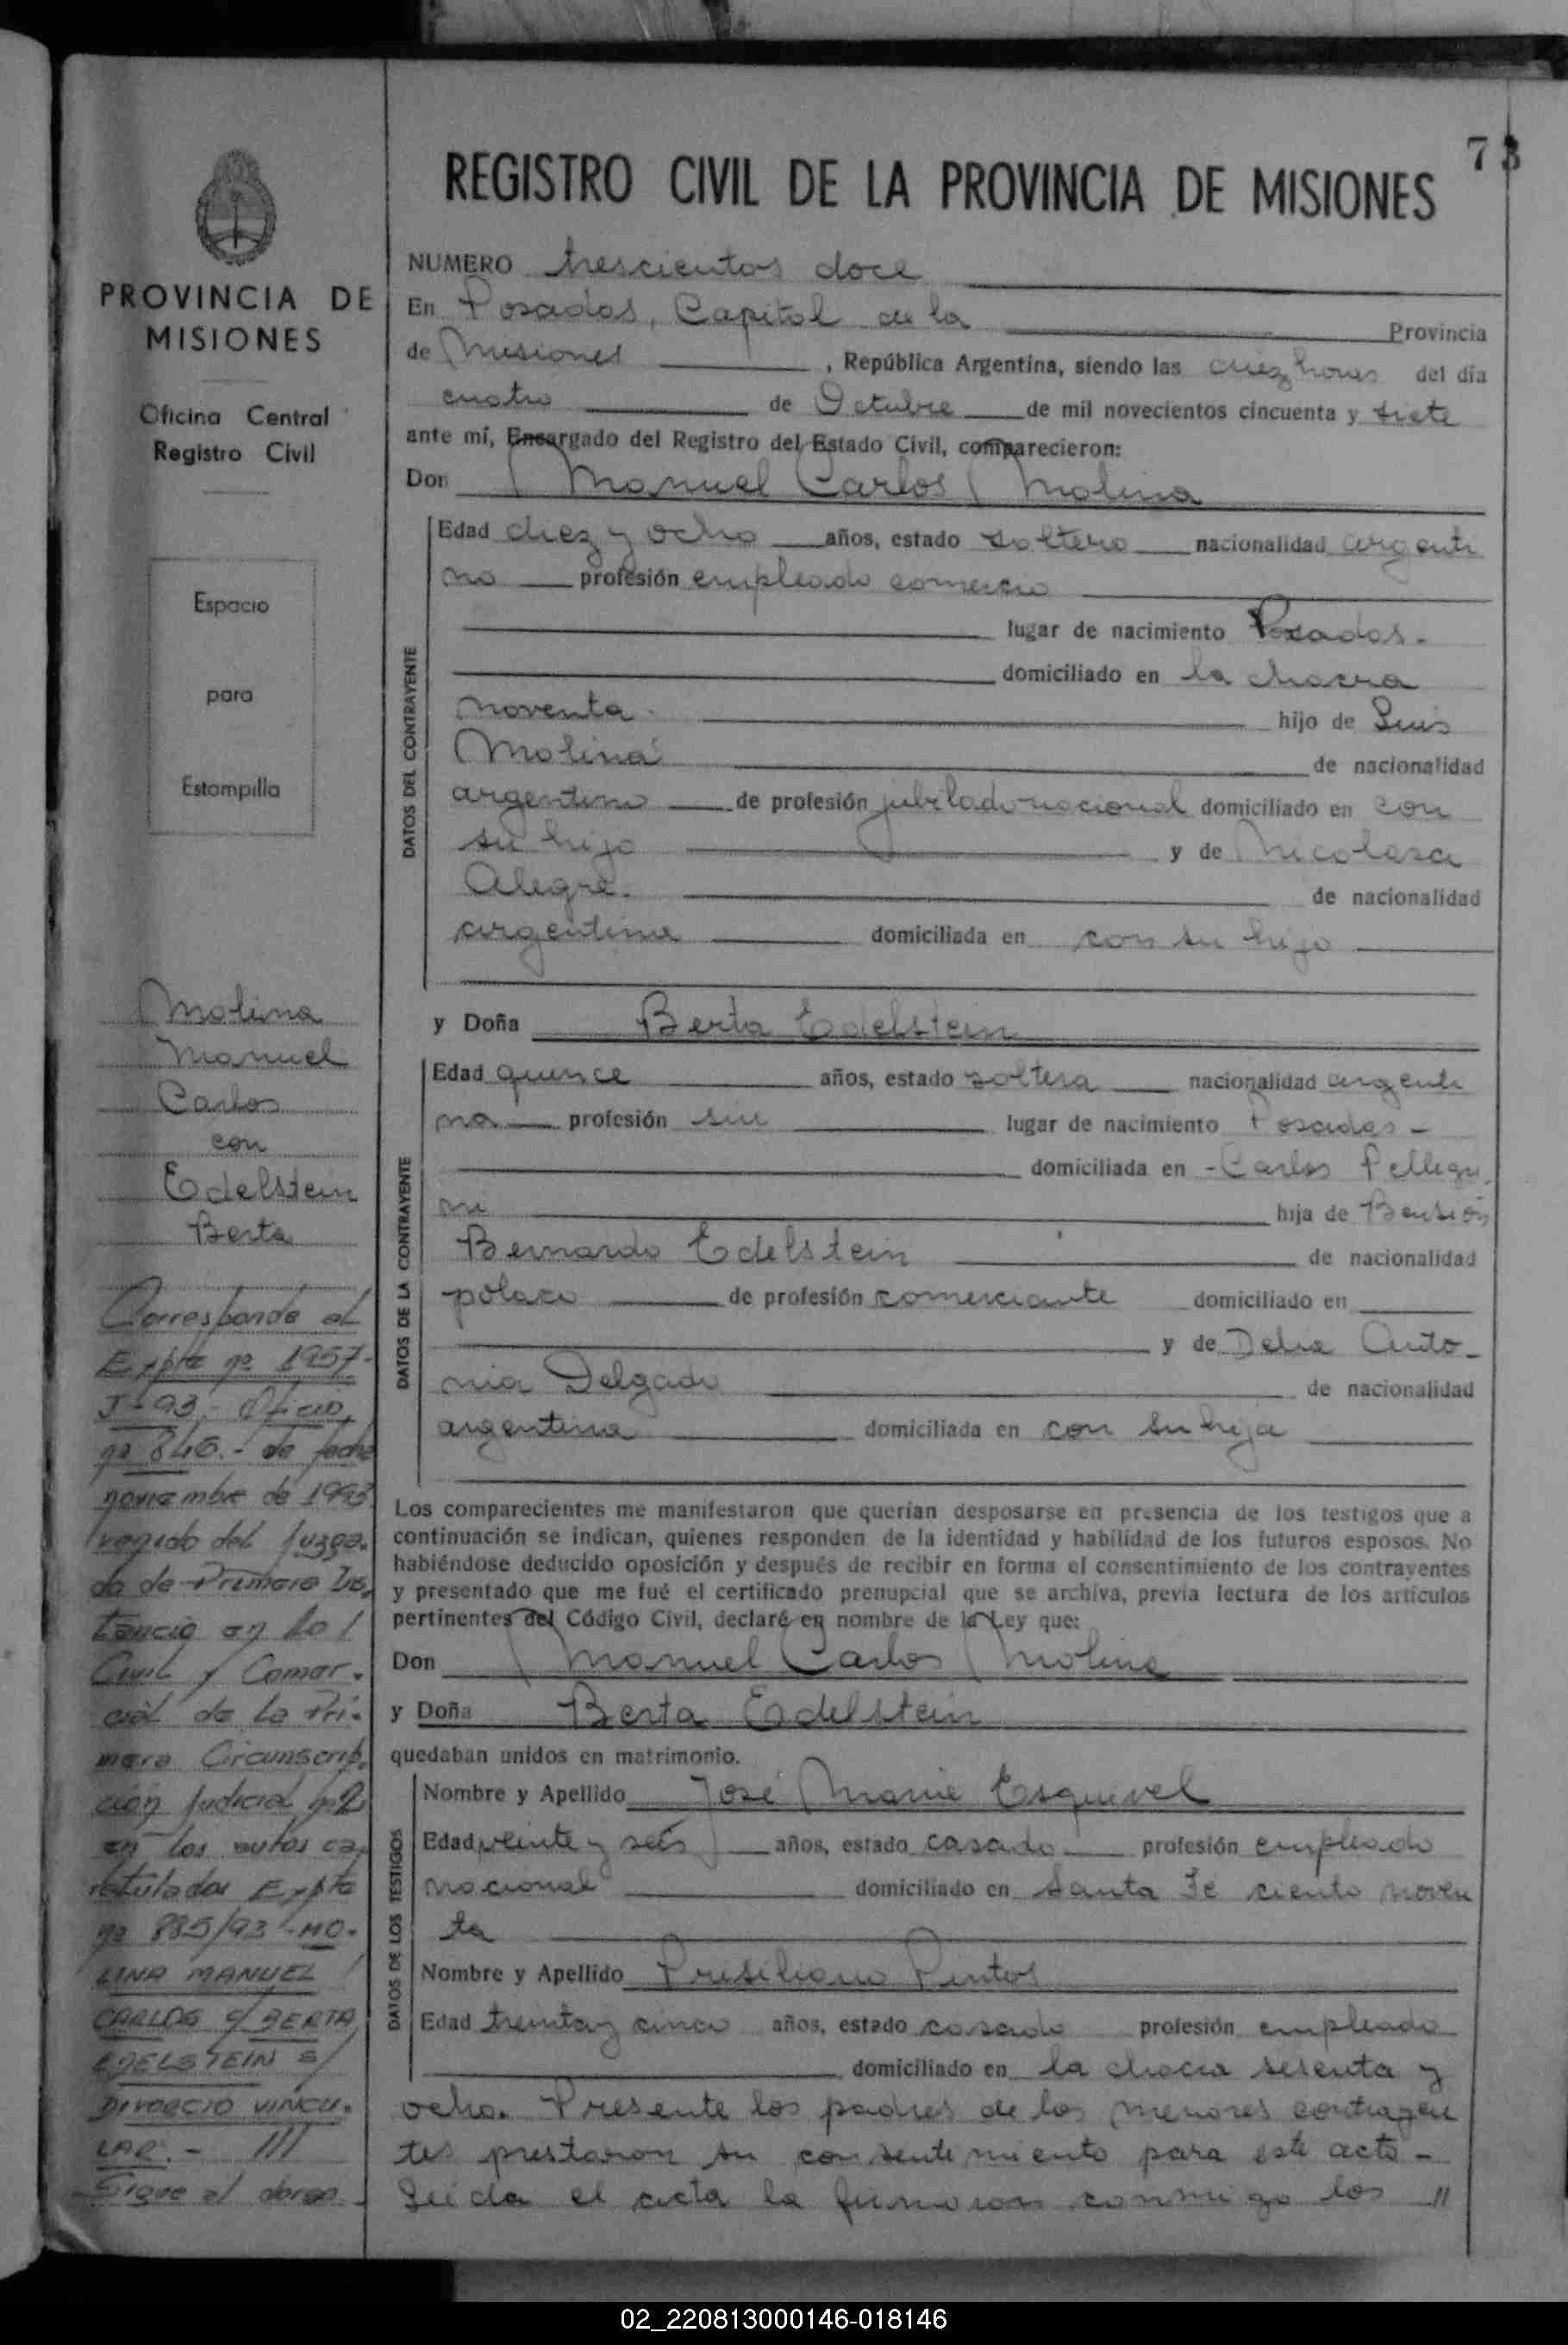 73
REGISTRO CIVIL DE LA PROVINCIA DE MISIONES
PROVINCIA DE
MISIONES
Oficina Central
Registro Civil
Espacio
para
Estampilla
Molina
Manuel
Carlos
con
Edelstein
Berta
Corresponde al
Expte nº 1957-
J-93.- Oficio,
nº 846.- de fecha
noviembre de 1993
venido del Juzga-
do de Primera Ins-
tancia en lo
Civil y Comer-
cial de la Pri-
mera Circunscrip-
ción Judicial nº2
en los autos ca-
ratulados Expte
nº 885/93 -MO-
LINA MANUEL
CARLOS c/ BERTA
EDELSTEIN s/
DIVORCIO VINCU-
LAR.- ///
Sigue al dorso
NUMERO trescientos doce
En Posadas, Capital de la Provincia
de Misiones, República Argentina, siendo las diez horas del día
cuatro de Octubre de mil novecientos cincuenta y siete
ante mí, Encargado del Registro del Estado Civil, comparecieron:
Don Manuel Carlos Molina
DATOS DEL CONTRAYENTE
Edad diez y ocho años, estado soltero nacionalidad argenti
no profesión empleado comercio
lugar de nacimiento Posadas.
domiciliado en la chacra
noventa. hijo de Luis
Molina de nacionalidad
argentino de profesión jubilado nacional domiciliado en con
su hijo y de Nicolasa
Alegre. de nacionalidad
argentina domiciliada en con su hijo
y Doña Berta Edelstein
DATOS DE LA CONTRAYENTE
Edad quince años, estado soltera nacionalidad argenti
na profesión sin lugar de nacimiento Posadas -
domiciliada en - Carlos Pellegri
ni hija de Bension
Bernardo Edelstein de nacionalidad
polaco de profesión comerciante domiciliado en
y de Delia Anto-
nia Delgado de nacionalidad
argentina domiciliada en con su hija
Los comparecientes me manifestaron que querían desposarse en presencia de los testigos que a
continuación se indican, quienes responden de la identidad y habilidad de los futuros esposos. No
habiéndose deducido oposición y después de recibir en forma el consentimiento de los contrayentes
y presentado que me fué el certificado prenupcial que se archiva, previa lectura de los artículos
pertinentes del Código Civil, declaré en nombre de la Ley que:
Don Manuel Carlos Molina
y Doña Berta Edelstein
quedaban unidos en matrimonio.
DATOS DE LOS TESTIGOS
Nombre y Apellido José Maria Esquivel
Edad veinte y seis años, estado casado profesión empleado
nacional domiciliado en Santa Fe ciento noven
ta
Nombre y Apellido Prisiliano Pintos
Edad treinta y cinco años, estado casado profesión empleado
domiciliado en la chacra sesenta y
ocho. Presente los padres de los menores contrayen
tes prestaron su consentimiento para este acto -
Leída el acta la firmaron conmigo los //
02_220813000146-018146